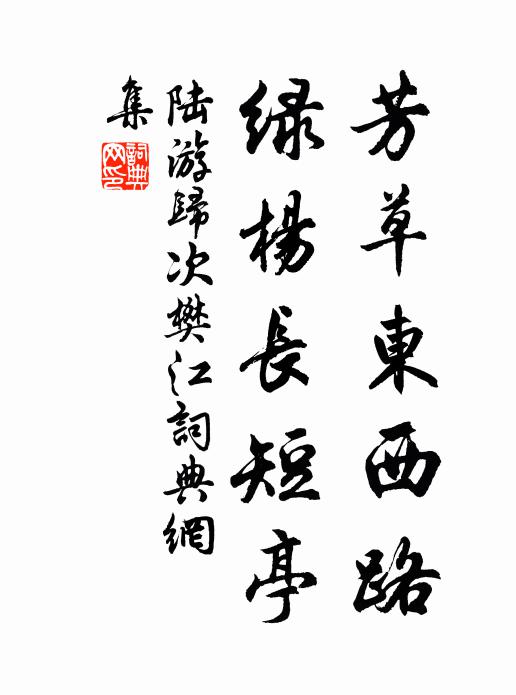 芳草東西路
緑楊長短亭
陆游歸次樊江詞典網
集
詞典網印